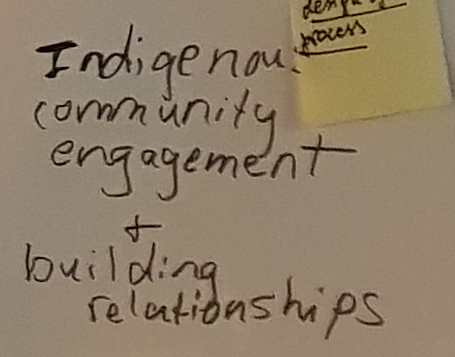 process
Indigenou
community
engagement
+
building
relationships